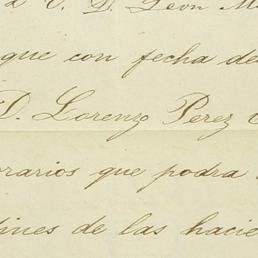 á V. D. León M
que con fecha de
D. Lorenzo Perez
orarios que podra
fines de las hacie